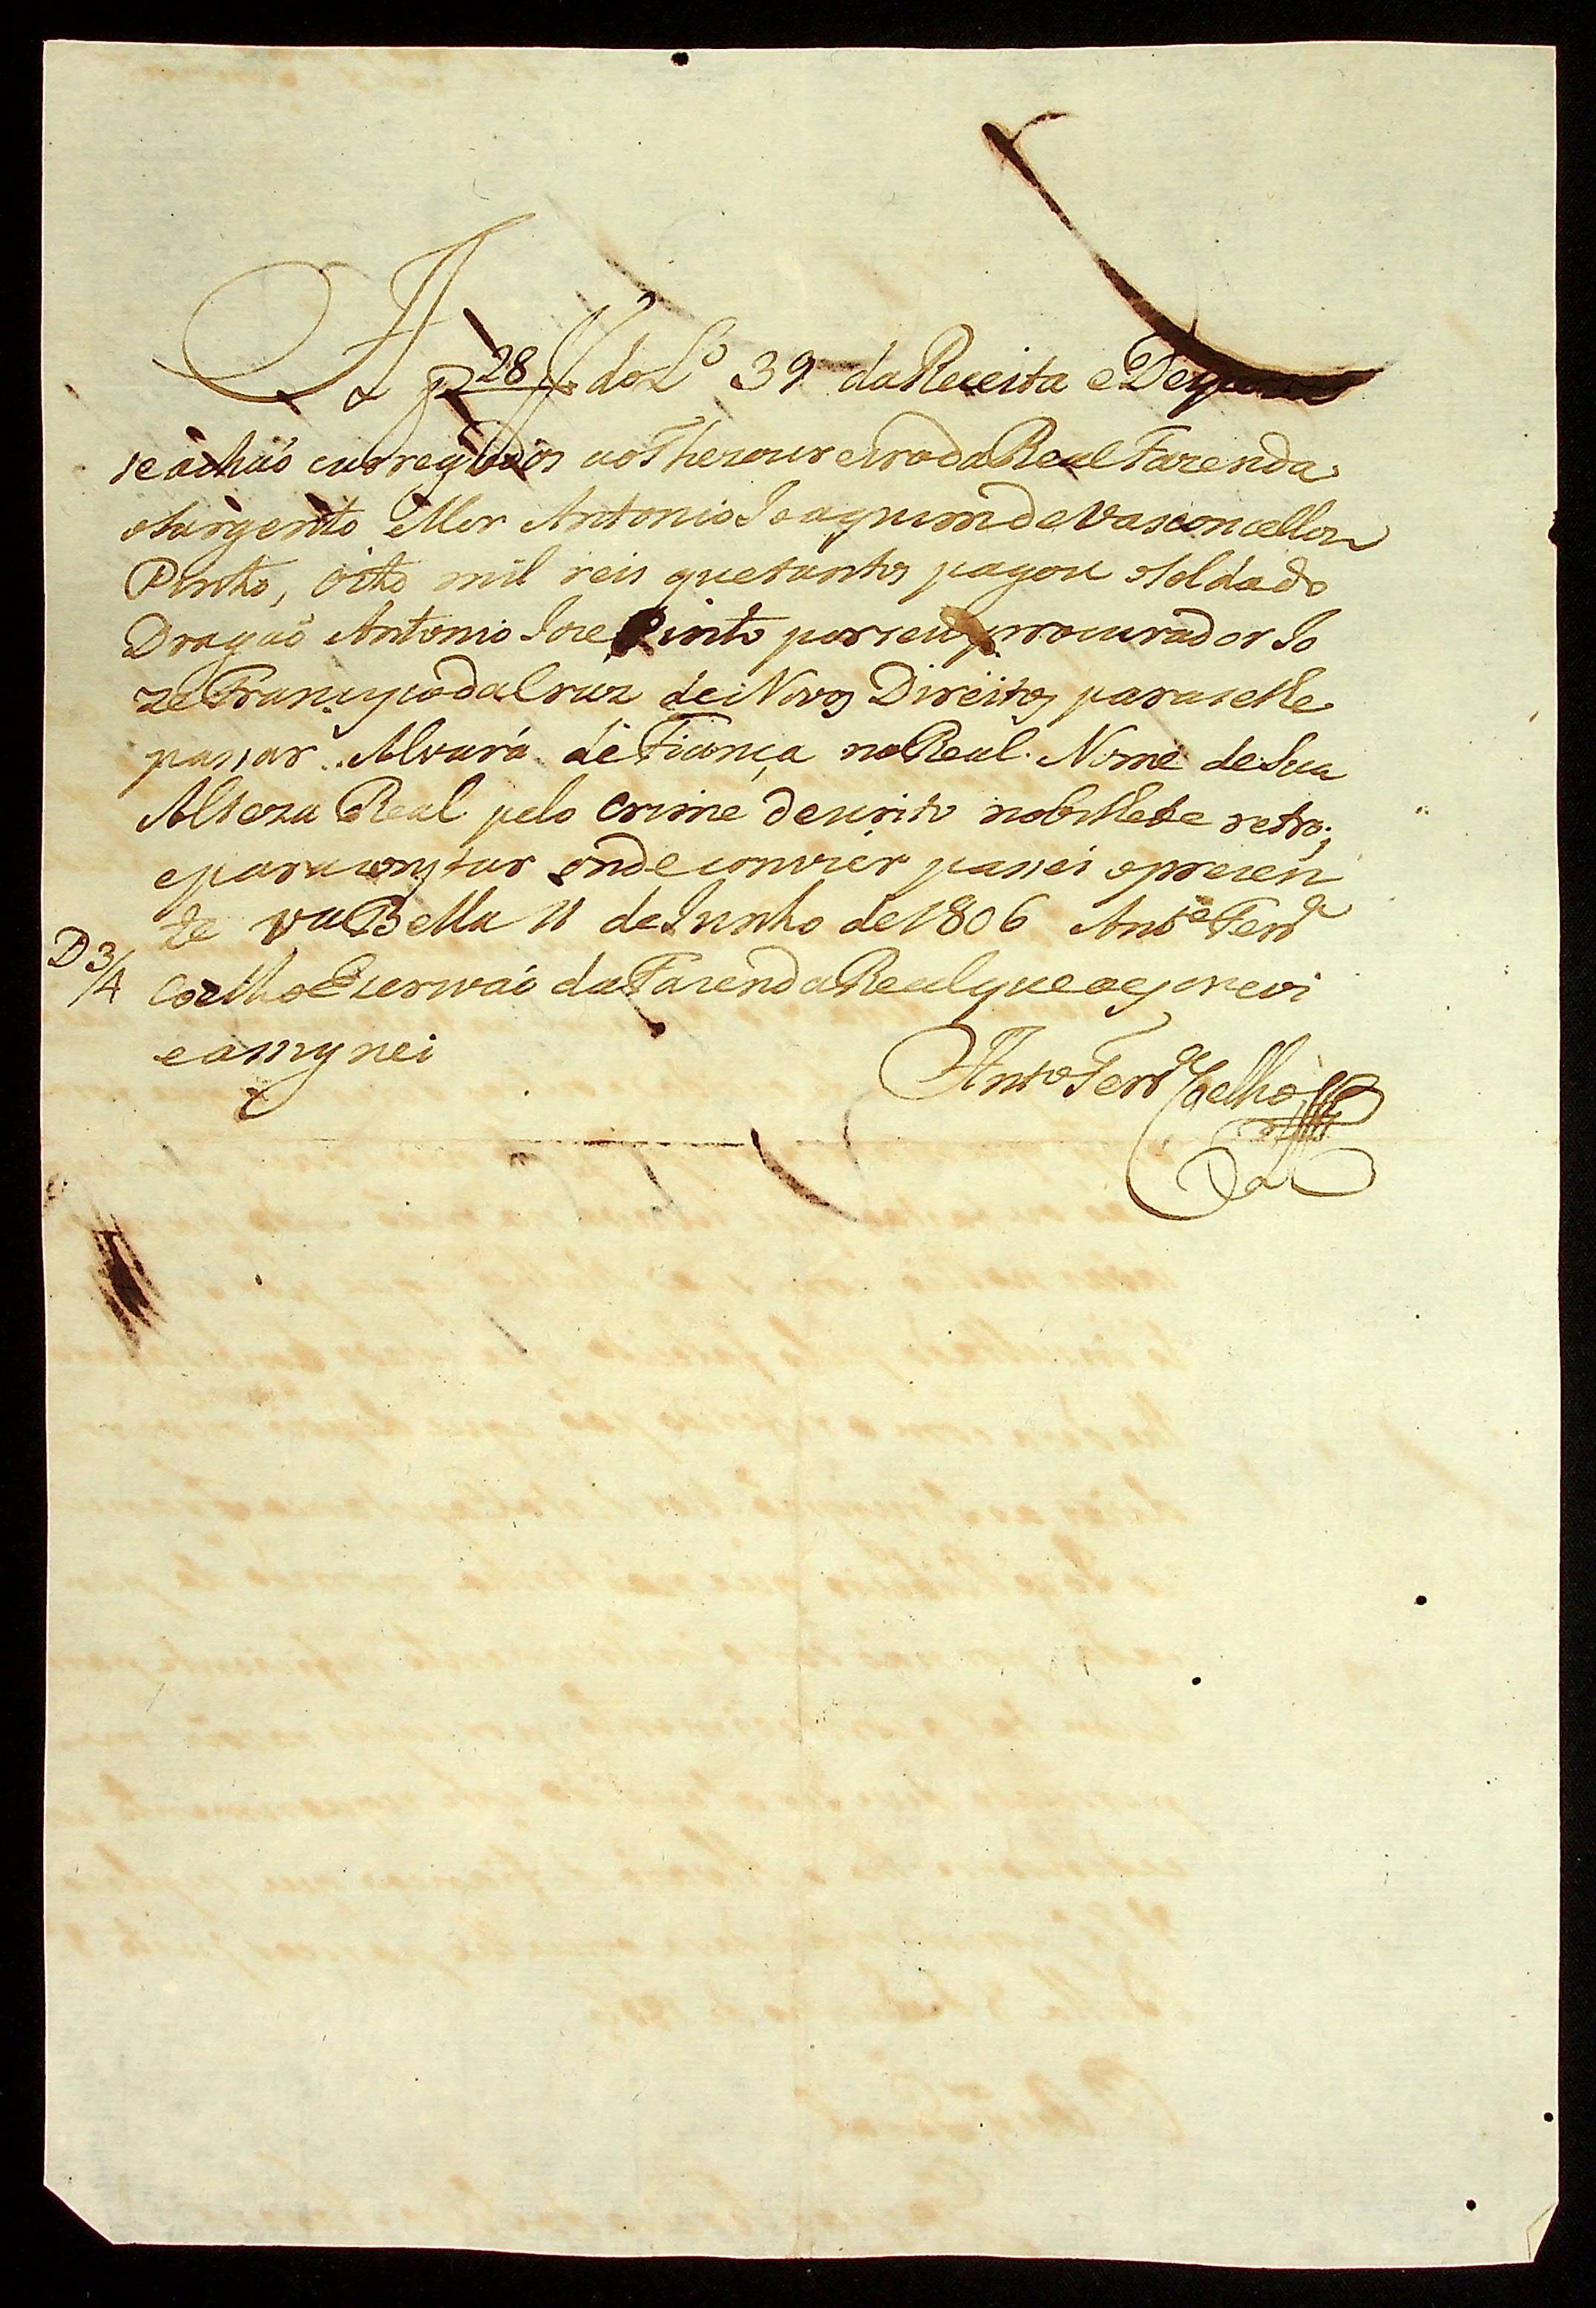 A f 28 do L.º 39 da Receita e Despeza
se achaõ carregados ao Thezoureiro da Real Fazenda
o Sargento Mor Antonio Joaquim de Vasconcellos
Pinto, oito mil reis que tantos pagou o Soldado
Dragaõ Antonio Joze Pinto por seu procurador Jo
ze Francisco da Cruz de Novos Direitos para se lhe
passar Alvará de Fiança no Real Nome de Sua
Alteza Real pelo crime descrito no bilhete retro;
e para constar onde convier passei o prezen
te Va Bella 11 de Junho de 1806 Antº Ferrª
D 3/4
Coelho Escrivaõ da Fazenda Real que o escrevi
e assignei
Antº Ferrª Coelho